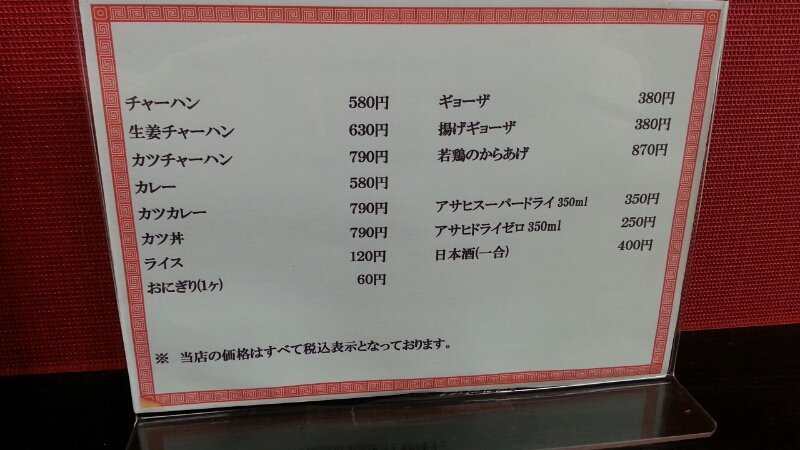 チャーハン 580円
生姜チャーハン 630円
カツチャーハン 790円
カレー 580円
カツカレー 790円
カツ丼 790円
ライス 120円
おにぎり(1ヶ) 60円
ギョーザ 380円
揚げギョーザ 380円
若鶏のからあげ 870円
アサヒスーパードライ 350ml 350円
アサヒドライゼロ 350ml 250円
日本酒(一合) 400円
※ 当店の価格はすべて税込表示となっております。